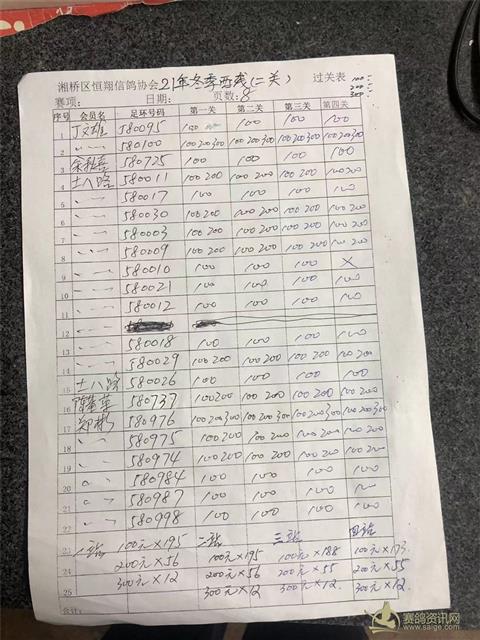 湘桥区恒翔信鸽协会 21年冬季西线(二关) 过关表 100:
200:
300:
赛项: 日期: 页数: 8
序号 会员名 足环号码 第一关 第二关 第三关 第四关
1 丁文雄 580095 100 100 100 100
2 〃 一 580100 100 200 300 100 200 300 100 200 300 100 200 300
3 580725 100 100 100 100
4 士八路 580011 100 200 100 200 100 200 100 200
5 〃 一 580017 100 100 100 100
6 〃 一 580030 100 200 100 200 100 200 100 200
7 〃 一 580003 100 200 100 200 100 200 100 200
8 〃 一 580009 100 200 100 200 100 200 100 200
9 〃 一 580010 100 100 100 X
10 〃 一 580021 100 100 100 100
11 〃 一 580012 100 100 100 100
12
13 〃 一 580018 100 100 100 100
14 〃 一 580029 100 200 100 200 100 200 100 200
15 士八路 580026 100 100 100 100
16 580737 100 200 100 200 100 200 100 200
17 郑彬 580976 100 200 300 100 200 300 100 200 300 100 200 300
18 〃 一 580975 100 200 100 200 100 200 100 200
19 〃 一 580974 100 200 100 200 100 200 100 200
20 〃 580984 100 100 100 100
21 〃 一 580987 100 100 100 100
22 〃 一 580998 100 100 100 100
23 一站 100元×195 二站 三站 四站
24 200元×56 100元×195 100元×188 100元×173
25 300元×12 200元×56 200元×55 200元×55
300元×12 300元×12. 300元×12.
合计:
赛鸽资讯网
www.saige.com